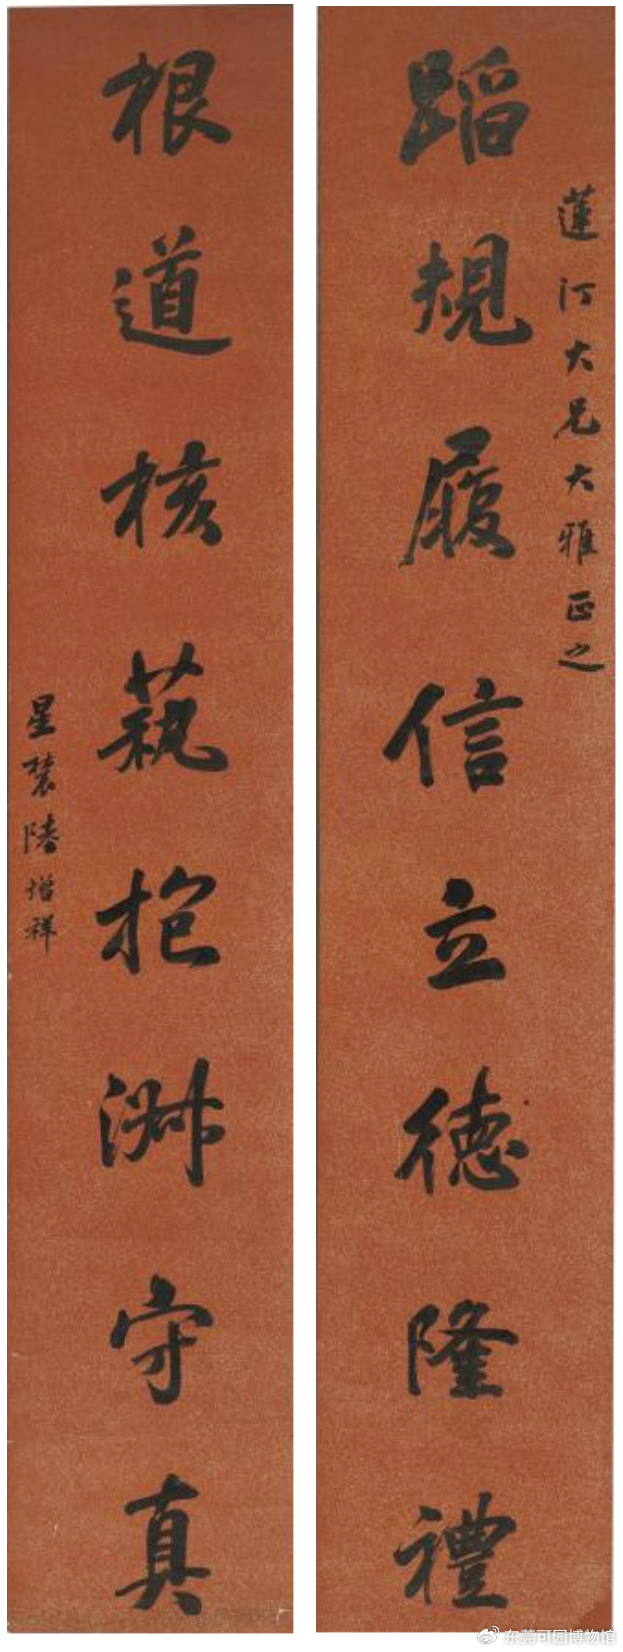 蓮汀大兄大雅正之
蹈規履信立德隆禮
根道核藝抱淵守真
星農陸增祥
東莞可园博物馆